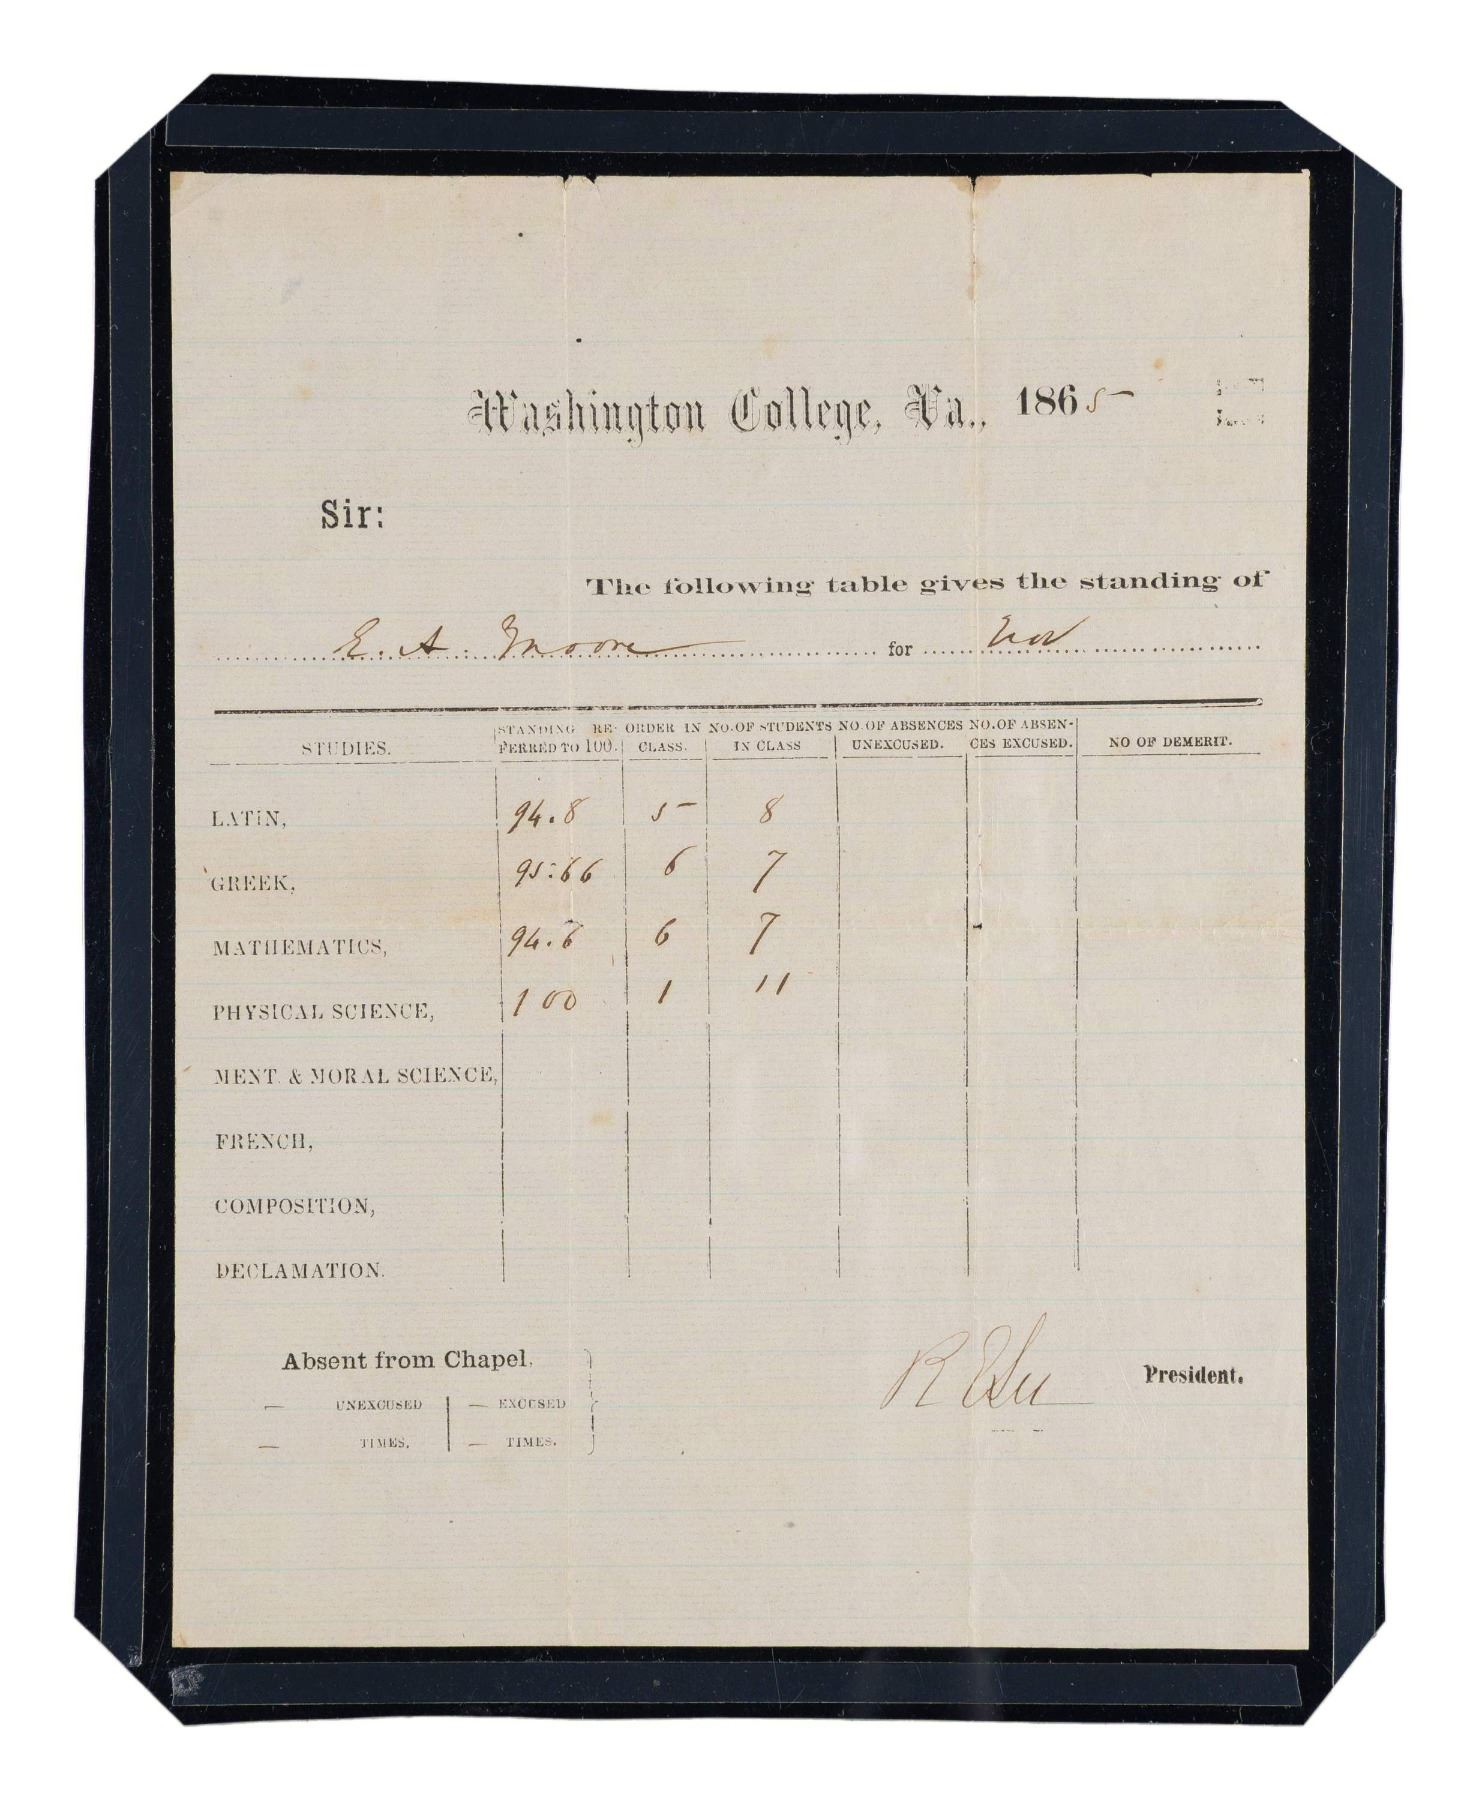 Washington College, Va., 1865
Sir:
The following table gives the standing of
E. A. Moore for Nov
STUDIES. STANDING RE- ORDER IN NO. OF STUDENTS NO. OF ABSENCES NO. OF ABSEN- NO OF DEMERIT.
FERRED TO 100. CLASS. IN CLASS UNEXCUSED. CES EXCUSED.
LATIN, 94.8 5 8
GREEK, 95.66 6 7
MATHEMATICS, 94.6 6 7
PHYSICAL SCIENCE, 100 1 11
MENT. & MORAL SCIENCE,
FRENCH,
COMPOSITION,
DECLAMATION.
Absent from Chapel,
— UNEXCUSED — EXCUSED
— TIMES, — TIMES.
R E Lee President.